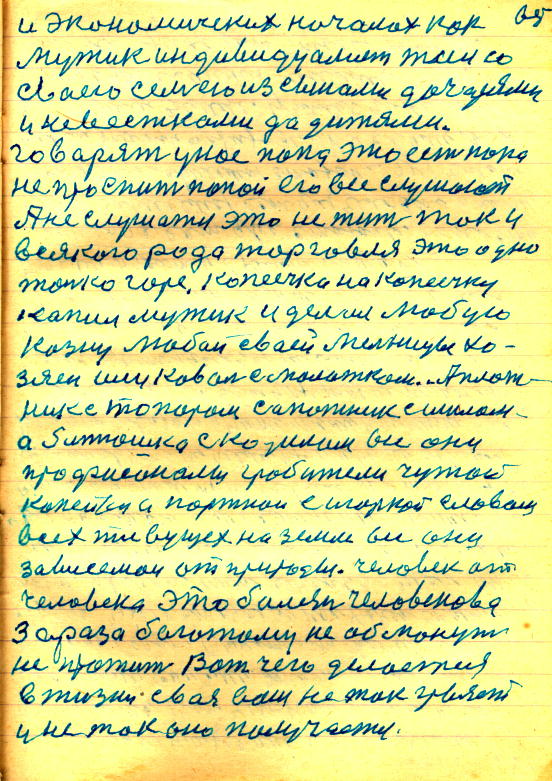 и экономических началах как 65
мужик индивидуалист жил со
своего семьею из сынами дочерями
и невестками да дитями.
говарят у нас попа это ест попа
не проспит попой его все слушают
А не слушати это не жит так и
всякого рода торговля это одно
только горе. копеечка на копеечку
капил мужик и делал любую
казну любой своей мельницы хо-
зяен или ковал с молотком. А плот-
ник с топором сапожник с шилом
а батюшка с кодилом все они
професионалы грабители чужой
копейки а портной с иголкой словом
всех живущех на земли все они
зависемои от природы. человек от
человека это болезн человекова
Зараза богатому не обманут
не прожит Вот чего делается
в жизни своя вош не так гвяет
и не так оно получаети.